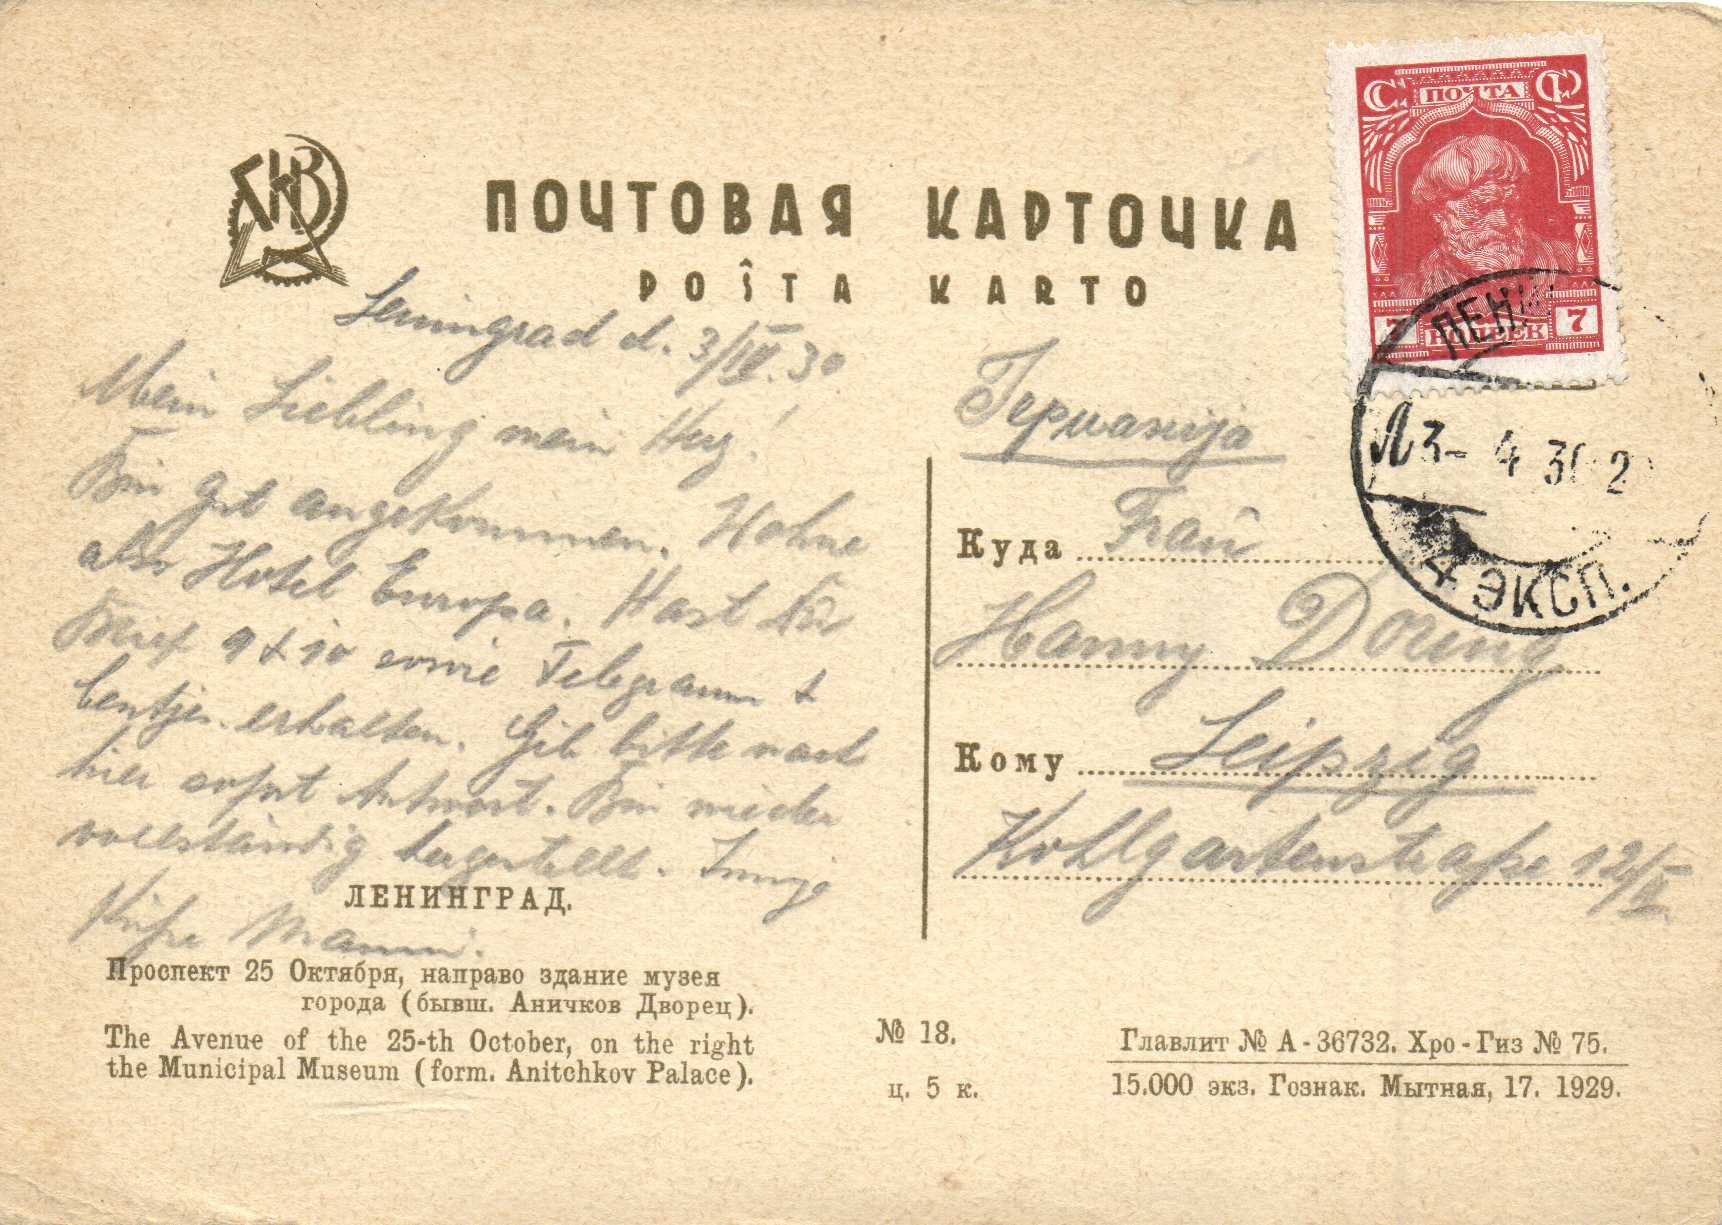 ПОЧТОВАЯ КАРТОЧКА
POŜTA KARTO
С ПОЧТА Ф
7 КОПЕЕК 7
ЛЕНИН
3- 4 30 2
4 ЭКСП.
Leningrad d. 3/IV. 30
Mein Liebling mein Herz!
Bin gut angekommen. Wohne
also Hotel Europa. Hast Du
Brief 9 & 10 sowie Telegramm &
erhalten. Gib bitte nach
hier sofort Antwort. Bin wieder
vollständig hergestellt. Innige
Küsse Manni.
Германија
Куда Frau
Hanny Döring
Кому Leipzig
Kohlgartenstraße 12/II
ЛЕНИНГРАД.
Проспект 25 Октября, направо здание музея
города (бывш. Аничков Дворец).
The Avenue of the 25-th October, on the right
the Municipal Museum (form. Anitchkov Palace).
№ 18.
ц. 5 к.
Главлит № А-36732. Хро-Гиз № 75.
15.000 экз. Гознак. Мытная, 17. 1929.